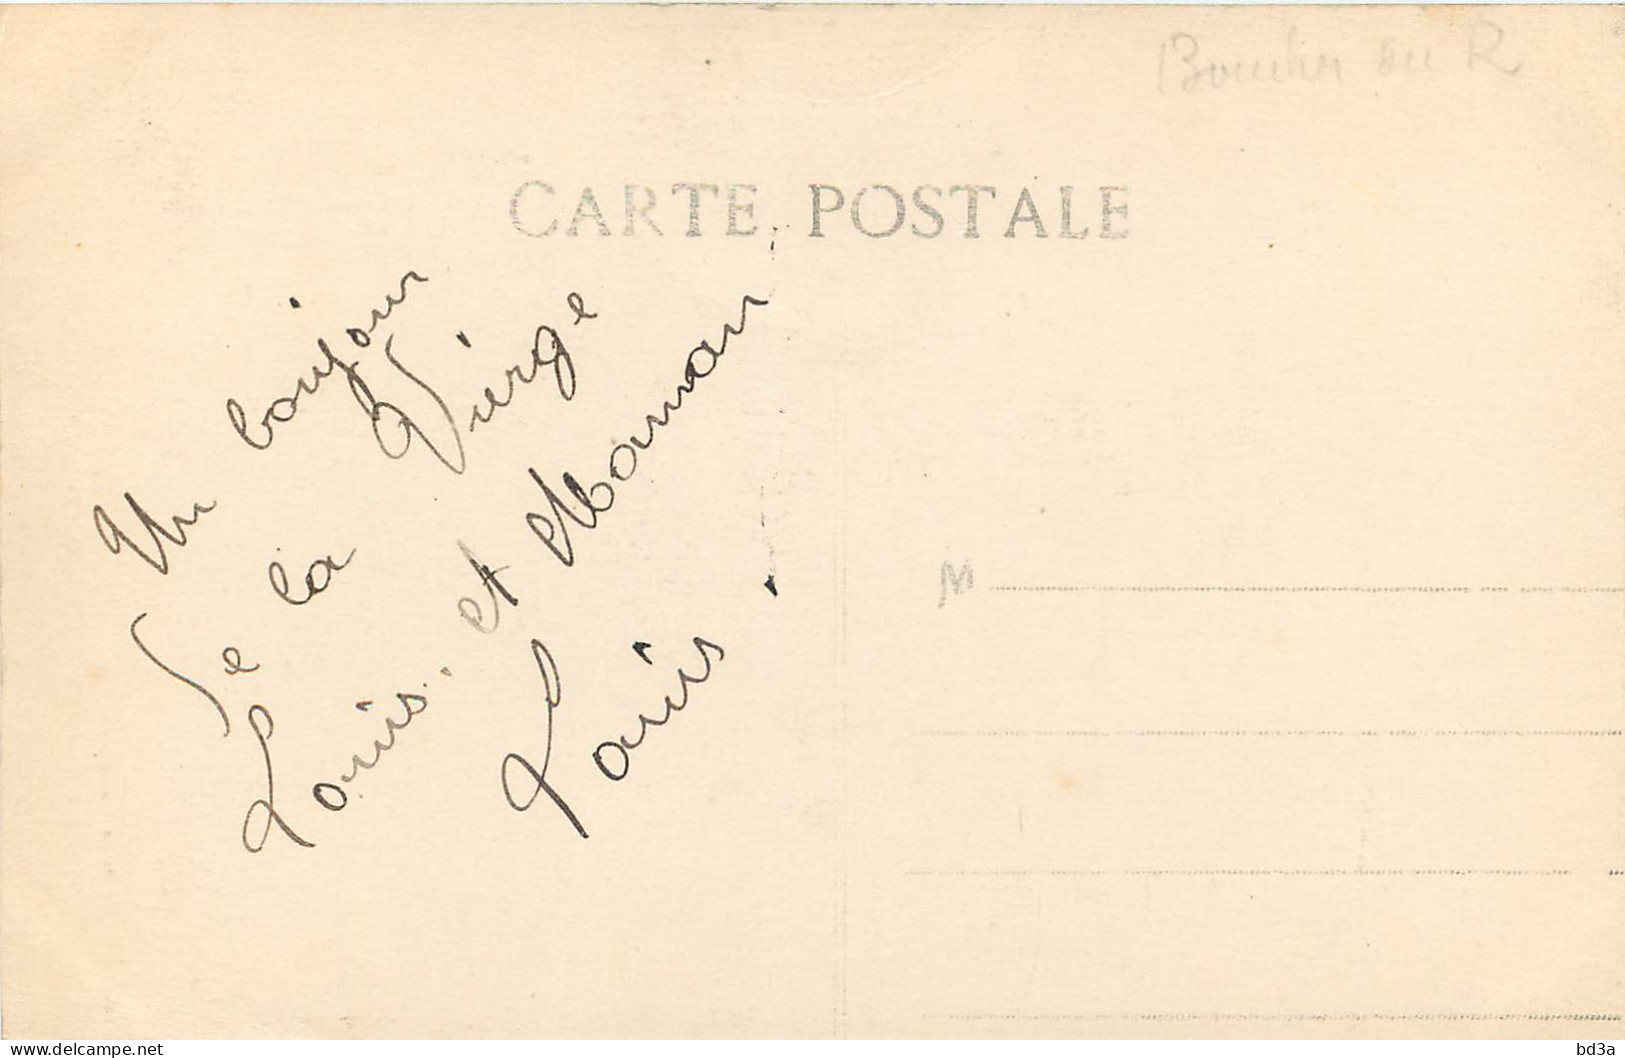 Bouches du R
CARTE POSTALE
Un bonjour
de la Vierge
Louis. et Maman
Louis
M
bd3a